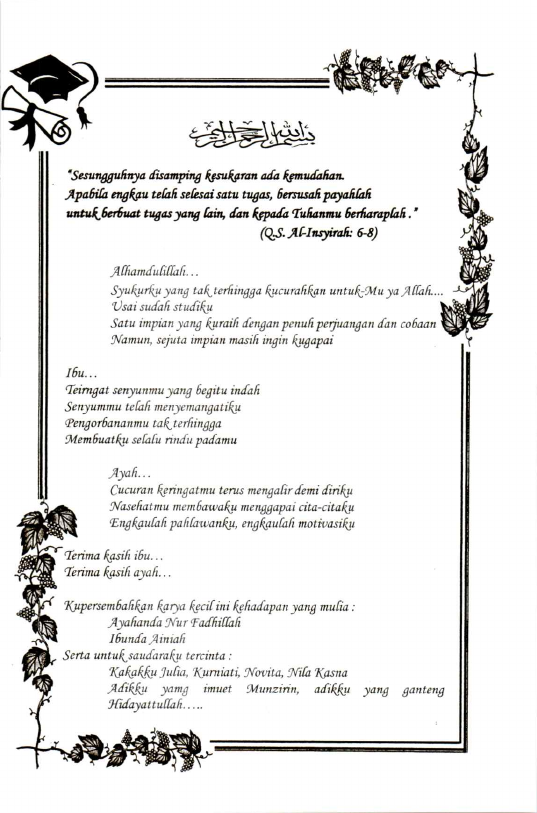 بسم الله الرحمن الرحيم
"Sesungguhnya disamping kesukaran ada kemudahan.
Apabila engkau telah selesai satu tugas, bersusah payahlah
untuk berbuat tugas yang lain, dan kepada Tuhanmu berharaplah ."
(Q.S. Al-Insyirah: 6-8)
Alhamdulillah...
Syukurku yang tak terhingga kucurahkan untuk-Mu ya Allah....
Usai sudah studiku
Satu impian yang kuraih dengan penuh perjuangan dan cobaan
Namun, sejuta impian masih ingin kugapai
Ibu...
Teirngat senyunmu yang begitu indah
Senyummu telah menyemangatiku
Pengorbananmu tak terhingga
Membuatku selalu rindu padamu
Ayah...
Cucuran keringatmu terus mengalir demi diriku
Nasehatmu membawaku menggapai cita-citaku
Engkaulah pahlawanku, engkaulah motivasiku
Terima kasih ibu...
Terima kasih ayah...
Kupersembahkan karya kecil ini kehadapan yang mulia :
Ayahanda Nur Fadhillah
Ibunda Ainiah
Serta untuk saudaraku tercinta :
Kakakku Julia, Kurniati, Novita, Nila Kasna
Adikku yamg imuet Munzirin, adikku yang ganteng
Hidayattullah.....